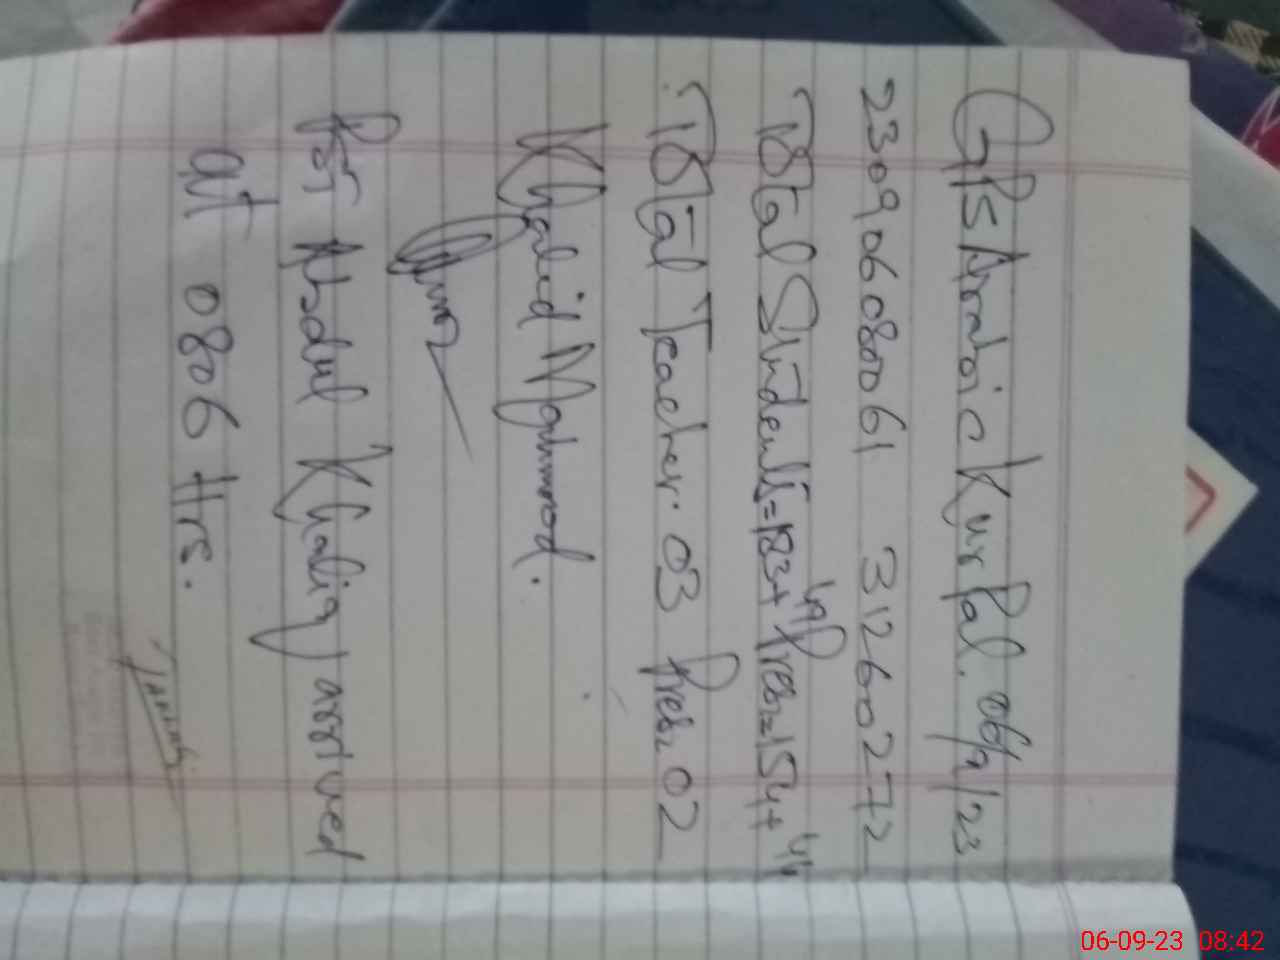 GPS Arrabic Kurpal. 06/9/23
230906080061 312602772
Total Students=183+49 Pres=154+44
Total Teacher. 03 Pres= 02
Khalid Mahmood.
PST Abdul Khaliq arrived
at 0806 Hrs.
06-09-23 08:42